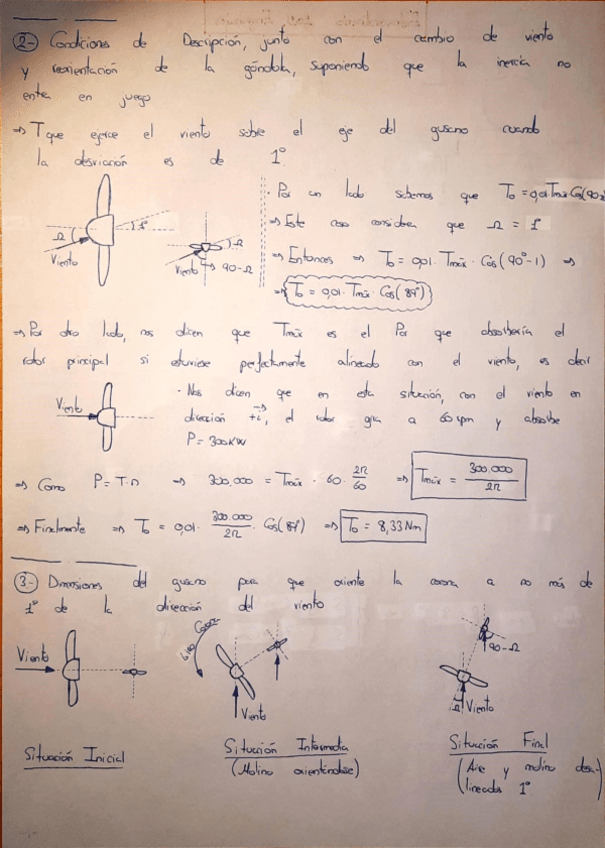 2- Condiciones de Descripción, junto con el cambio de viento
y reorientación de la góndola, suponiendo que la inercia no
entre en juego
⇒ T que ejerce el viento sobre el eje del gusano cuando
la desviación es de 1º.
Ω
1º
Viento
Viento
Ω
90-Ω
· Por un lado sabemos que T₀ = 0,01·Tmáx·Cos(90-Ω
⇒ Este caso considera que Ω = 1º
⇒ Entonces ⇒ T₀ = 0,01 · Tmáx · Cos(90º-1) ⇒
⇒ T₀ = 0,01 · Tmáx · Cos(89º)
⇒ Por otro lado, nos dicen que Tmáx es el Par que absorbería el
rotor principal si estuviese perfectamente alineado con el viento, es decir
Viento
· Nos dicen que en esta situación, con el viento en
dirección +i, el rotor gira a 60 rpm y absorbe
P = 300KW
⇒ Como P = T·n ⇒ 300.000 = Tmáx · 60 · 2π/60 ⇒ Tmáx = 300.000/2π
⇒ Finalmente ⇒ T₀ = 0,01 · 300.000/2π · Cos(89º) ⇒ T₀ = 8,33 Nm
3- Dimensiones del gusano para que oriente la corona a no más de
1º de la dirección del viento
Viento
Viento
90-Ω
Ω
Viento
Situación Inicial
Situación Intermedia
(Molino orientándose)
Situación Final
(Aire y molino desa-
lineados 1º